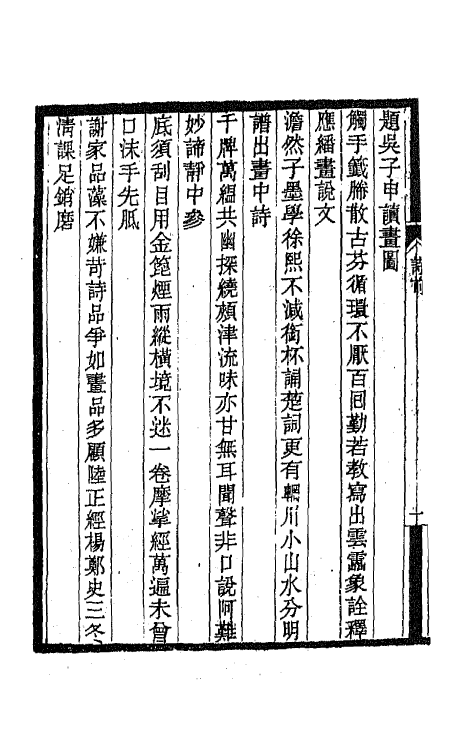 題吳子申讀畫圖
觸手籤縢散古芬循環不厭百回勤若教寫出雲靄象詮釋
應繙畫說文
澹然子墨學徐熙不減銜杯誦楚詞更有輞川小山水分明
譜出畫中詩
千牌萬縕共幽探繞頰津流味亦甘無耳聞聲非口說阿難
妙諦靜中參
底須刮目用金篦煙雨縱橫境不迷一卷摩挲經萬遍未曾
口沫手先胝
謝家品藻不嫌苛詩品爭如畫品多顧陸正經楊鄭史三冬
清課足銷磨